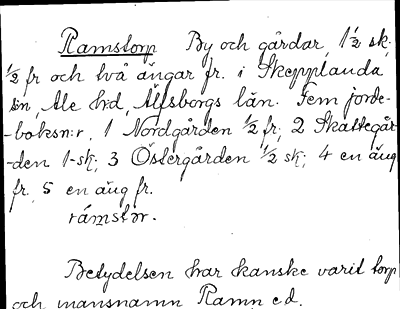 Ramstorp By och gårdar, 1 1/2 sk,
1/2 fr och två ängar fr. i Skepplanda
sn, Ale hd, Älfsborgs län. Fem jorde-
-boksn:r, 1 Nordgården 1/2 fr; 2 Skattegår-
-den 1 sk; 3 Östergården 1/2 sk; 4 en äng
fr, 5 en äng fr.
rámstǝr.
Betydelsen har kanske varit torp
och mansnamn Ramn e.d.